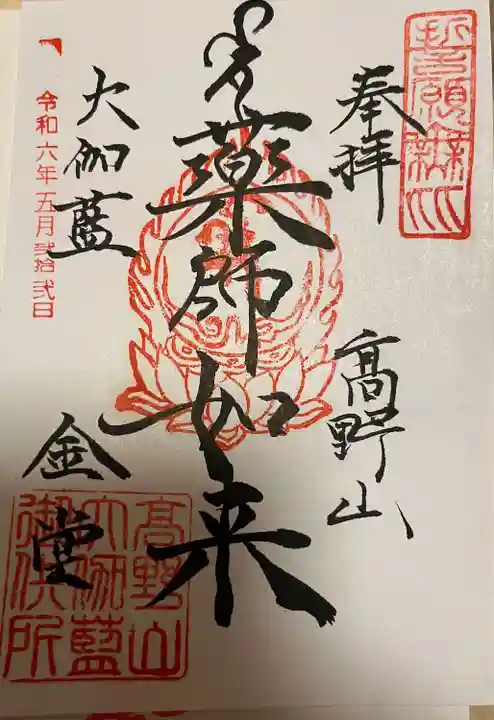 奉拝
高野山
薬師如来
大伽藍
金堂
令和六年五月弐拾弐日
高野山
大伽藍
御供所